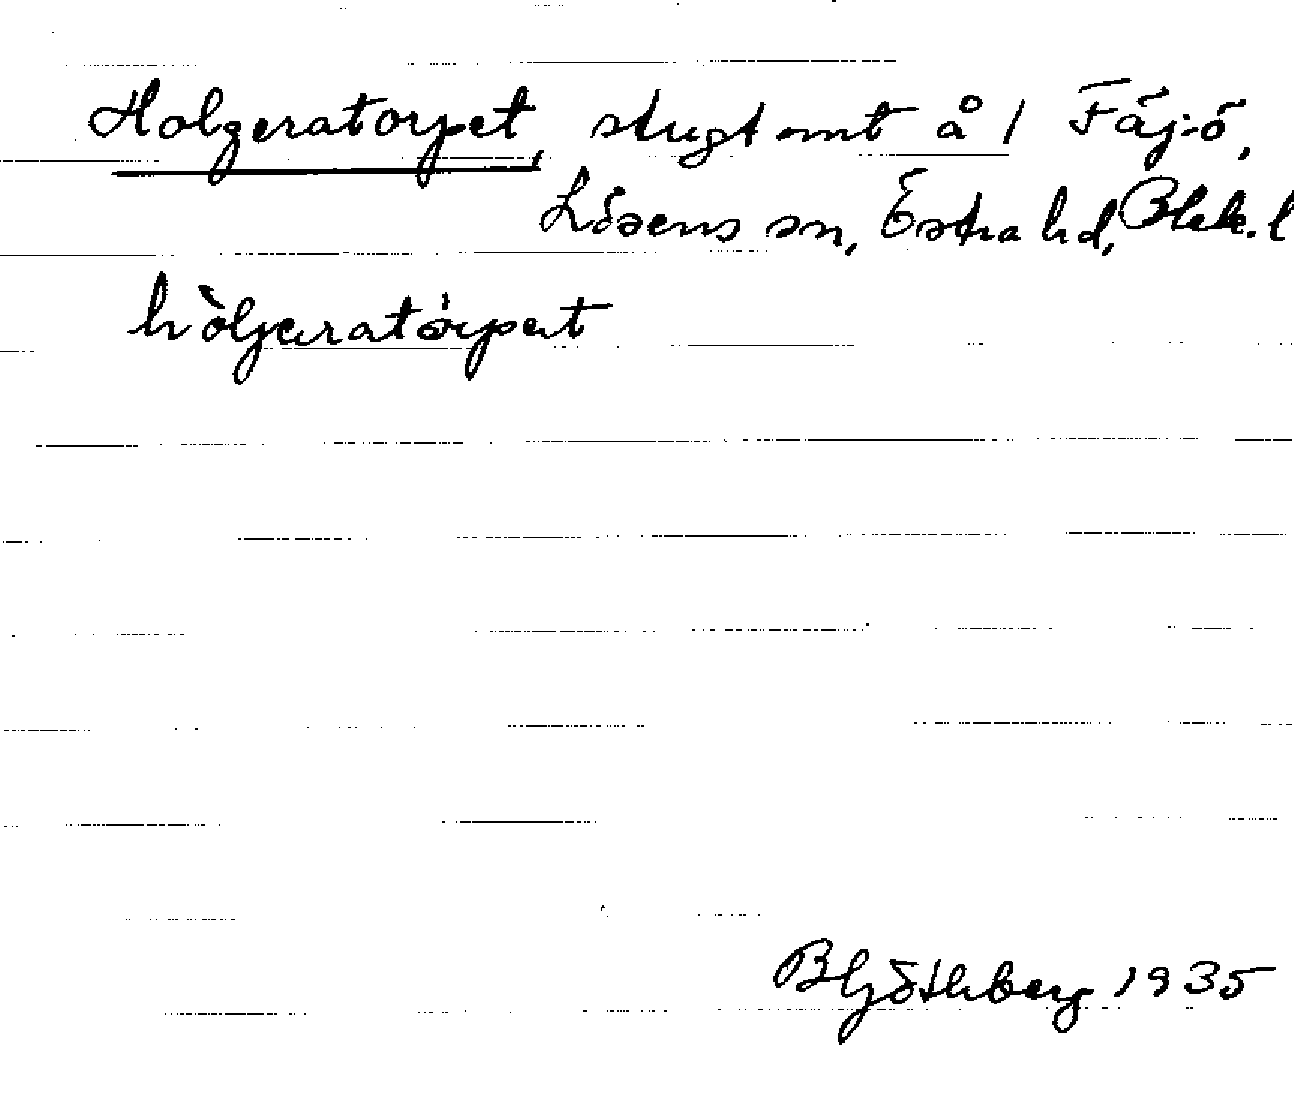 Holgeratorpet, stugtomt å 1 Fäjö,
Lösens sn, Östra hd, Blek. l
hòljeratórpet
B Göthberg 1935